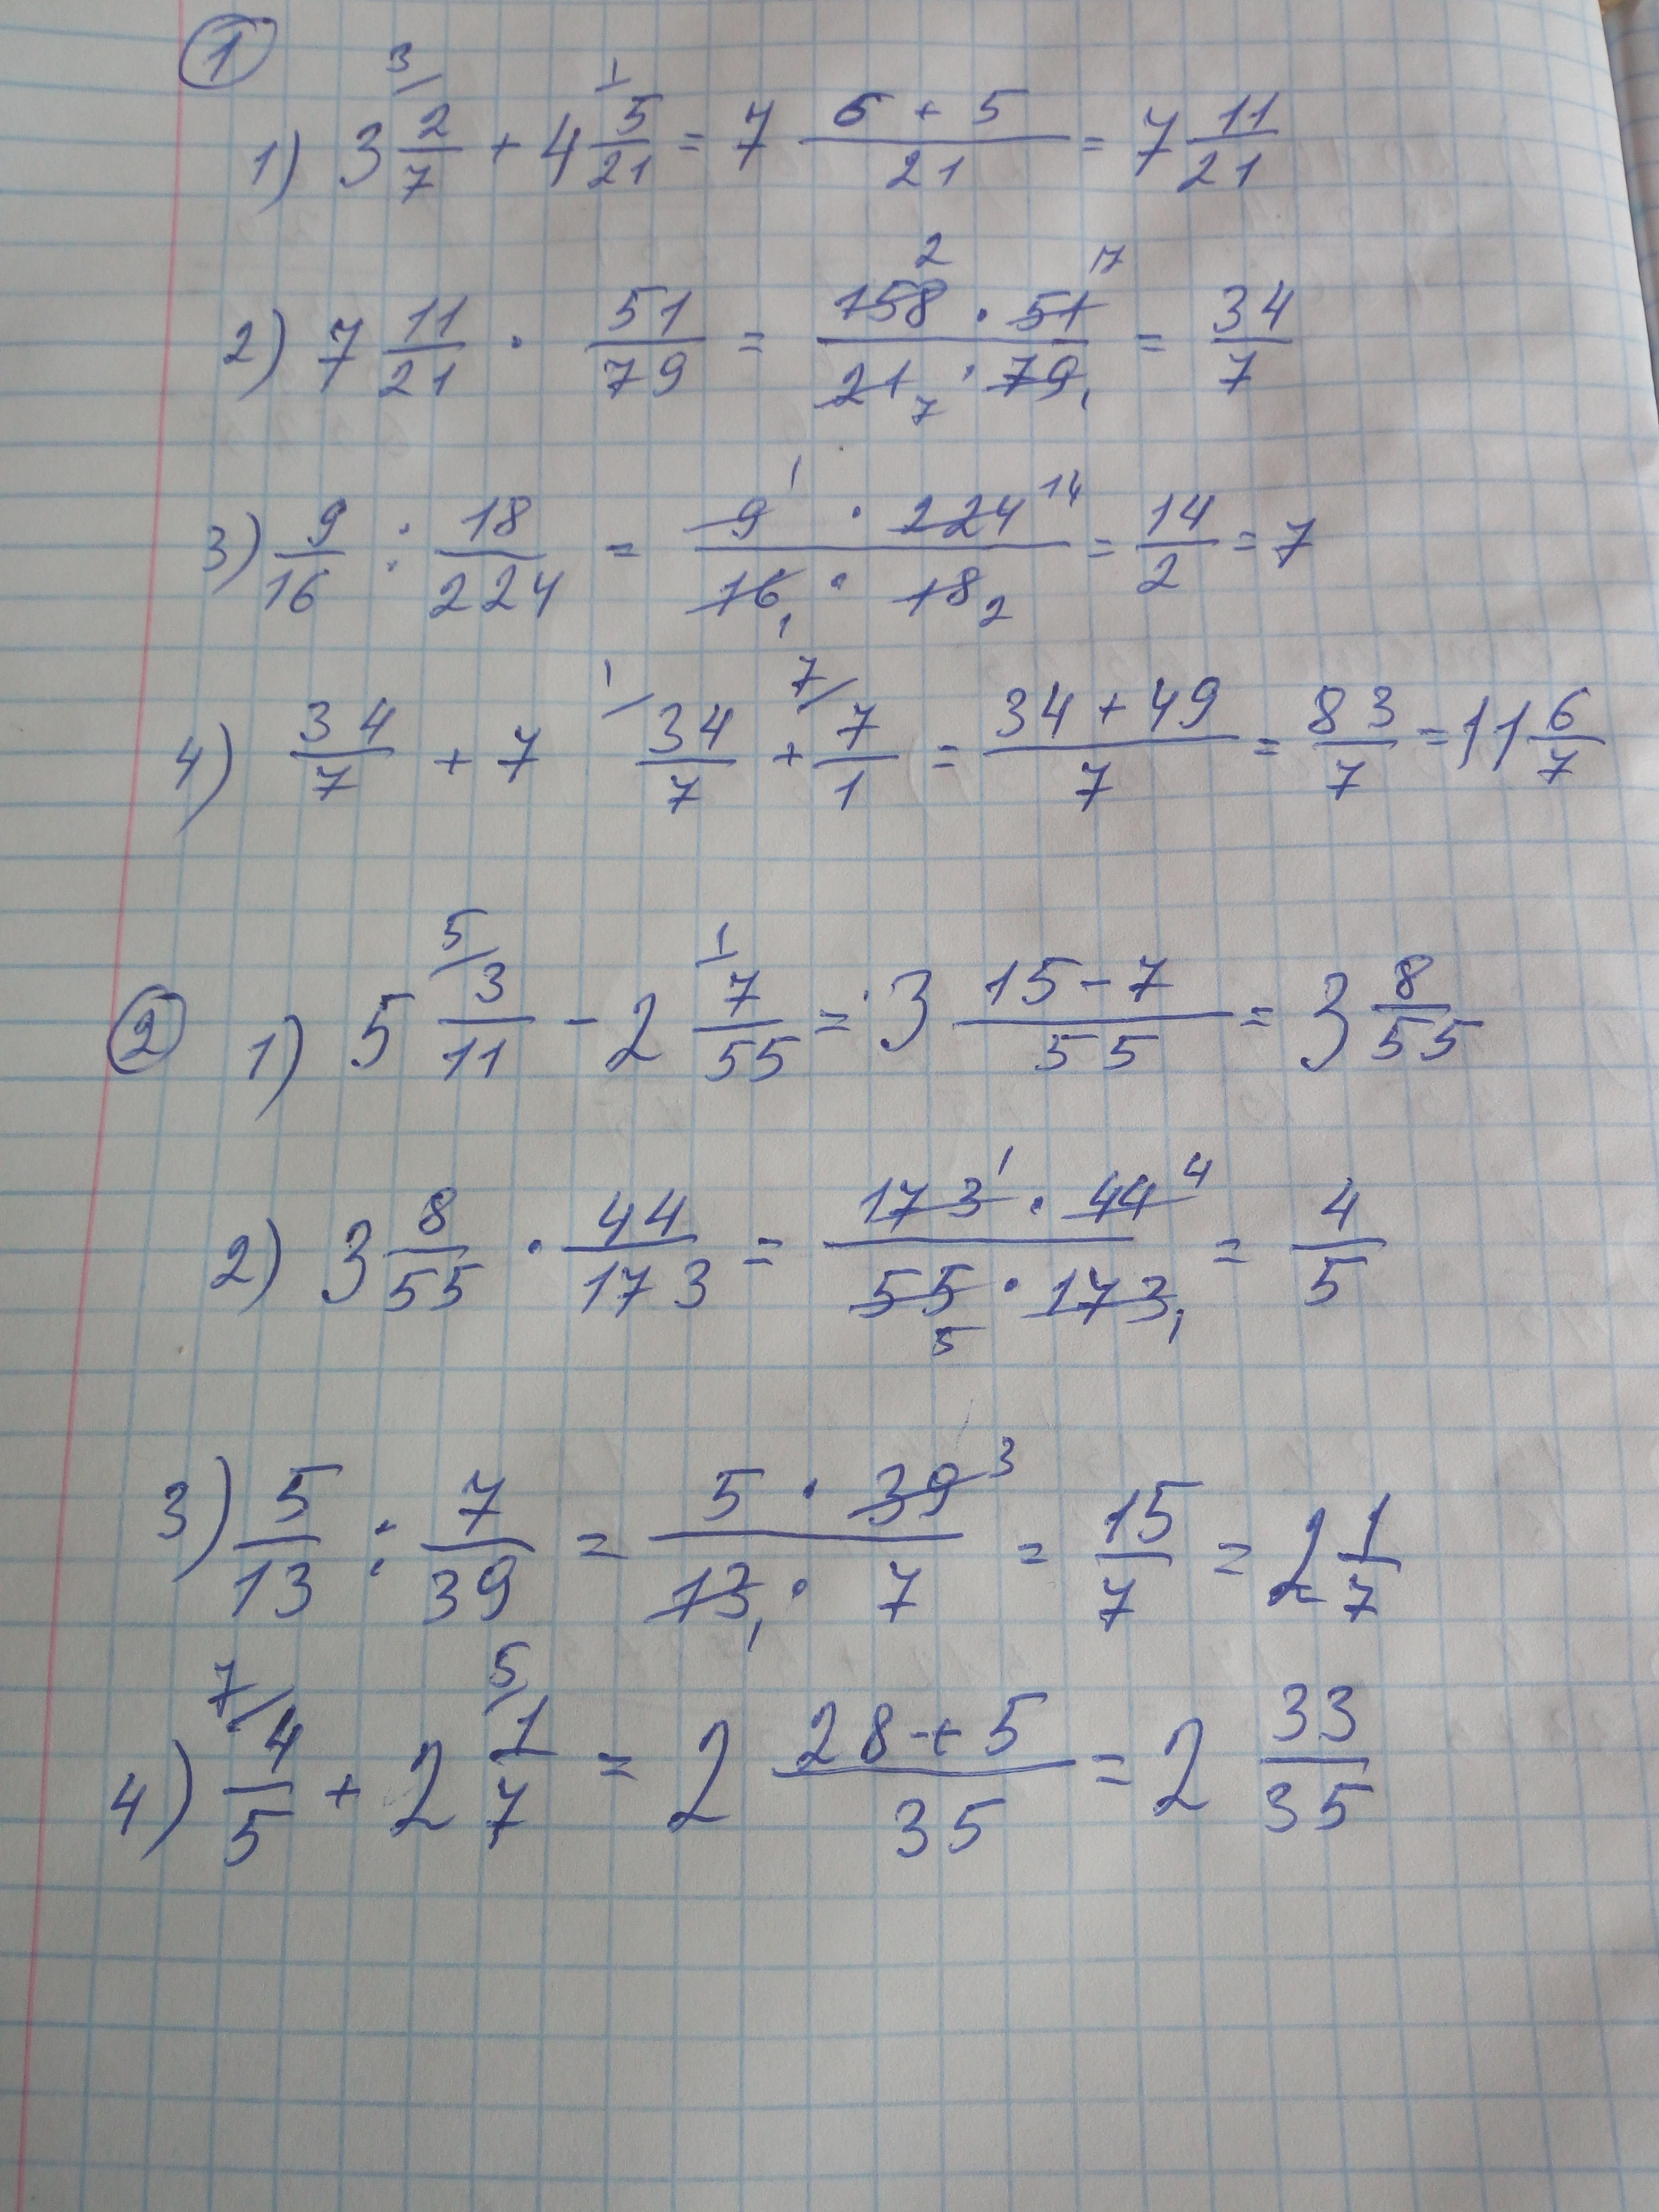 1
1) 3 2/7 (3/) + 4 5/21 (1/) = 7 (6 + 5)/21 = 7 11/21
2) 7 11/21 · 51/79 = (158 2 · 51 17)/(21 7 · 79 1) = 34/7
3) 9/16 : 18/224 = (9 1 · 224 14)/(16 1 · 18 2) = 14/2 = 7
4) 34/7 + 7 (1/) 34/7 + (7/) 7/1 = (34 + 49)/7 = 83/7 = 11 6/7
2 1) 5 3/11 (5/) - 2 7/55 (1/) = 3 (15 - 7)/55 = 3 8/55
2) 3 8/55 · 44/173 = (173 1 · 44 4)/(55 5 · 173 1) = 4/5
3) 5/13 : 7/39 = (5 · 39 3)/(13 1 · 7) = 15/7 = 2 1/7
4) (7/) 4/5 + 2 1/7 (5/) = 2 (28 + 5)/35 = 2 33/35